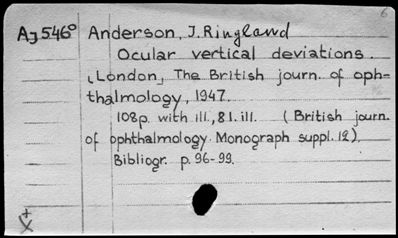 6
Aj 546° Anderson, J. Ringland
Ocular vertical deviations.
[London,] The British journ. of oph=
thalmology, 1947.
108p. with ill., 81. ill. (British journ.
of ophthalmology. Monograph suppl. 12).
Bibliogr. p. 96-99.